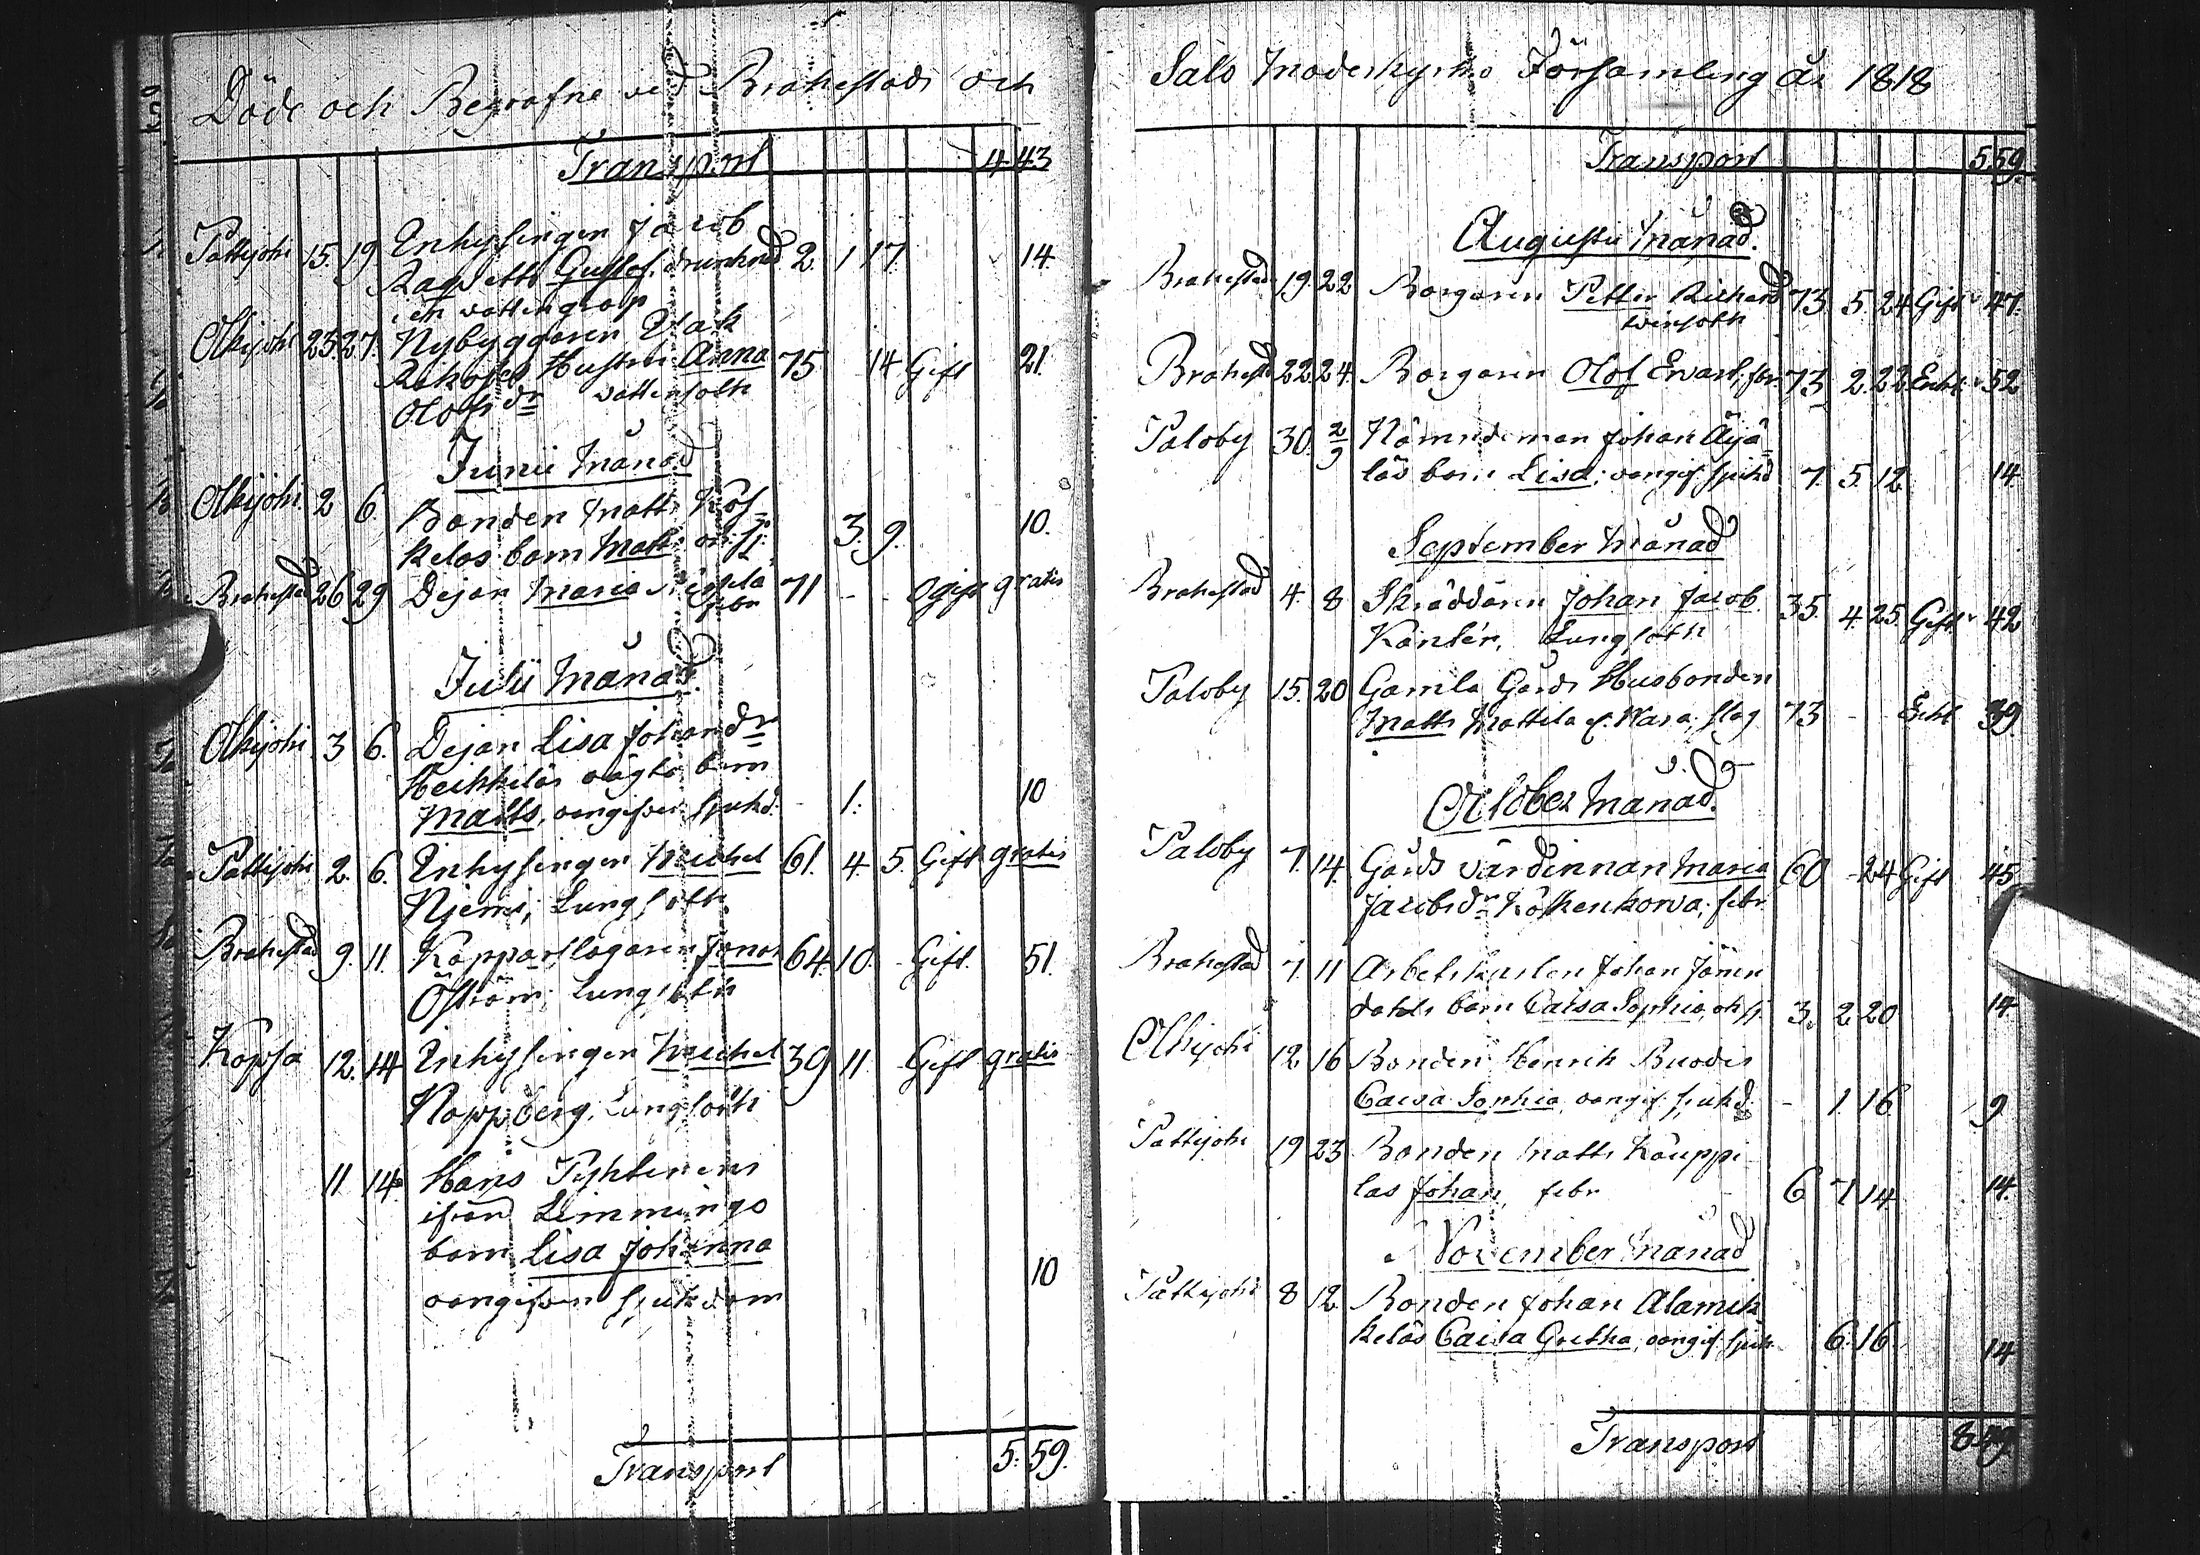 Döde och Begrafne ved Brahestads och
Transport 4 43
Pattijoki 15. 19 Enhysingen Jacob
Gustaf drunknad 2. 1 17. 14.
i en vattengrop
Olkijoki 23 27. Nybyggaren Isak
Hustru Anna 75 14 Gift 21.
Olofs dr vattensoth
Junii Månad
Olkijoki 2 6. Bonden Matts
kelas barn Matts 3. 9. 10.
Brahestad 26 29 Dejan Maria 71 - - Ogift gratis
febr
Julii Månad.
Olkijoki 3 6. Dejan Lisa Johansdr
Heikkilas oägta barn
Matts, oangifven sjukd. - 1. 10
Pattijoki 2. 6. Enhysingen Michel 61. 4. 5. Gift gratis
Njemi, Lungsoth
Brahestad 9. 11. Kopparslagaren Jonas 64. 10. - Gift. 51.
Öström; Lungsoth
Kopsa 12. 14 Enhysingen Michel 39 11 - Gift gratis
Koppberg, Lungsoth
11 14 Hans
ifrån Limmingo
barn Lisa Johanna
oangifven sjukdom 10
Transport 5. 59.
Salo Moderkyrko Församling År 1818
Transport 5 59.
Augusti Månad.
Brahestad 19. 22 Borgaren Petter Richard 73 5. 24 Gift 47.
Brahestad 22. 24 Borgaren Olof 73 2. 22 Enkl. 52
Paloby 30. 2/9 Nämndeman Johan Äijä
läs barn Lisa; oangif. sjukd 7. 5. 12. 14
September Månad
Brahestad 4. 8 Skräddaren Johan Jacob. 35. 4. 25. Gift 42
Kantér, Lungsoth
Paloby 15. 20 Gamla Gårds Husbonden
Matts Mattila slag 73 - - Enkl 39.
October Månad.
Paloby 7. 14. Gårds värdinnan Maria 60 - 24 Gift 45
Jacobsdr febr
Brahestad 7. 11 Arbetskarlen Johan
dahls barn Caisa Sophia 3. 2 20 14
Olkijoki 12 16 Bonden Henrik
Caisa Sophia oangif. sjukd. - 1. 16. 9
Pattijoki 19 23 Bonden Matts Kauppi
las Johan, febr 6 7 14 14.
November Månad
Pattijoki 8 12. Bonden Johan Alamik
kelas Caisa Gretha, oangif. sjuk. 6. 16. 14
Transport